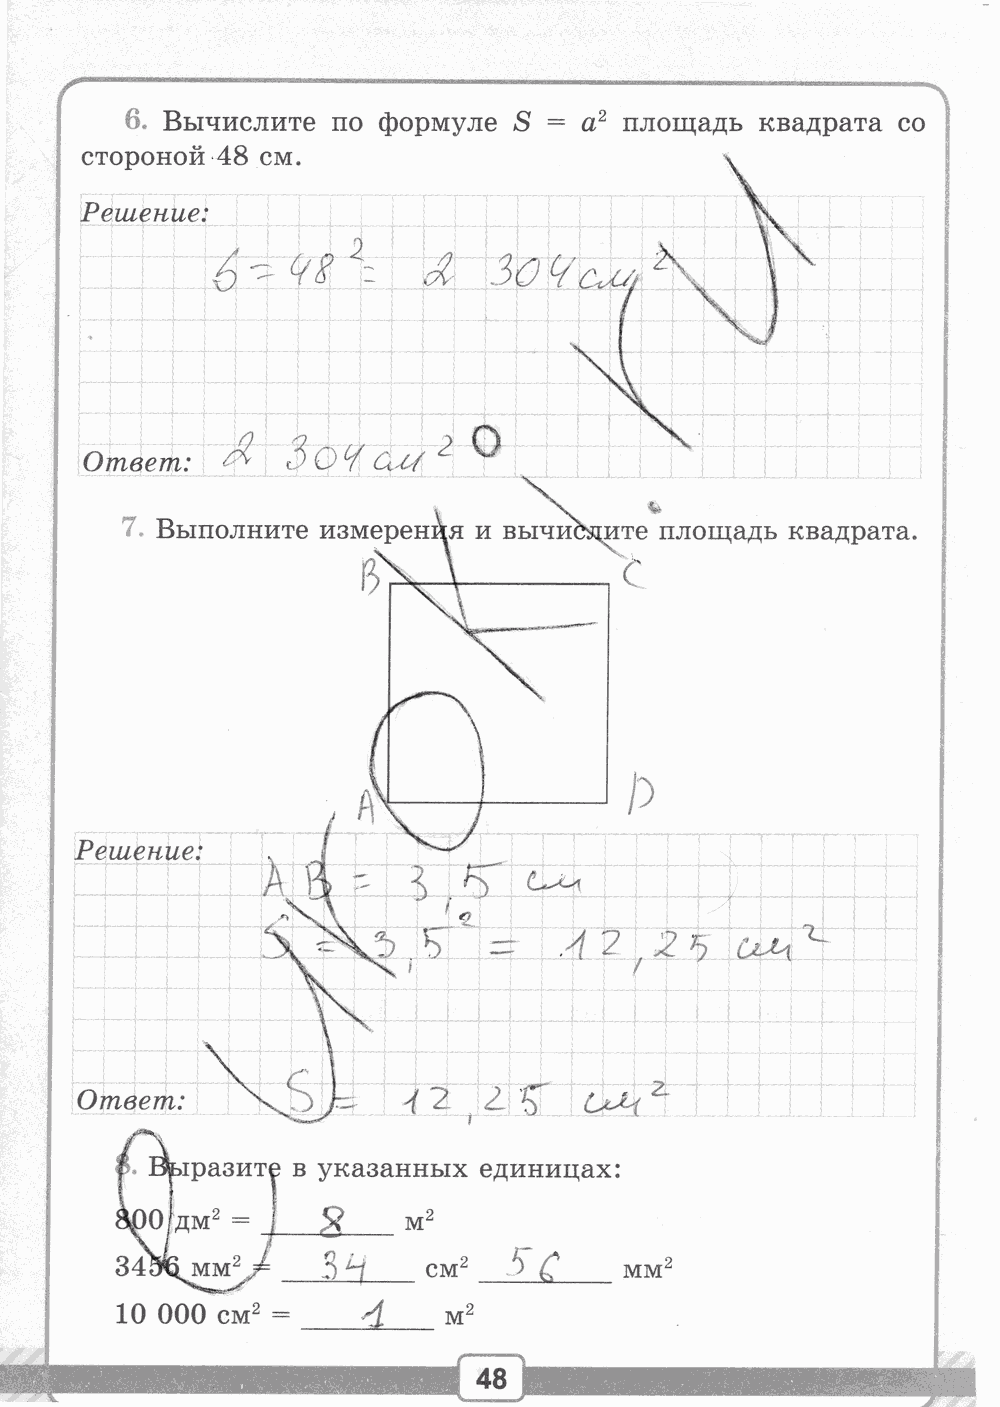 6. Вычислите по формуле S = a² площадь квадрата со
стороной 48 см.
Решение:
S = 48² = 2 304 см²
Ответ: 2 304 см²
7. Выполните измерения и вычислите площадь квадрата.
B C
A D
Решение:
AB = 3,5 см
S = 3,5² = 12,25 см²
Ответ: S = 12,25 см²
8. Выразите в указанных единицах:
800 дм² = 8 м²
3456 мм² = 34 см² 56 мм²
10 000 см² = 1 м²
48